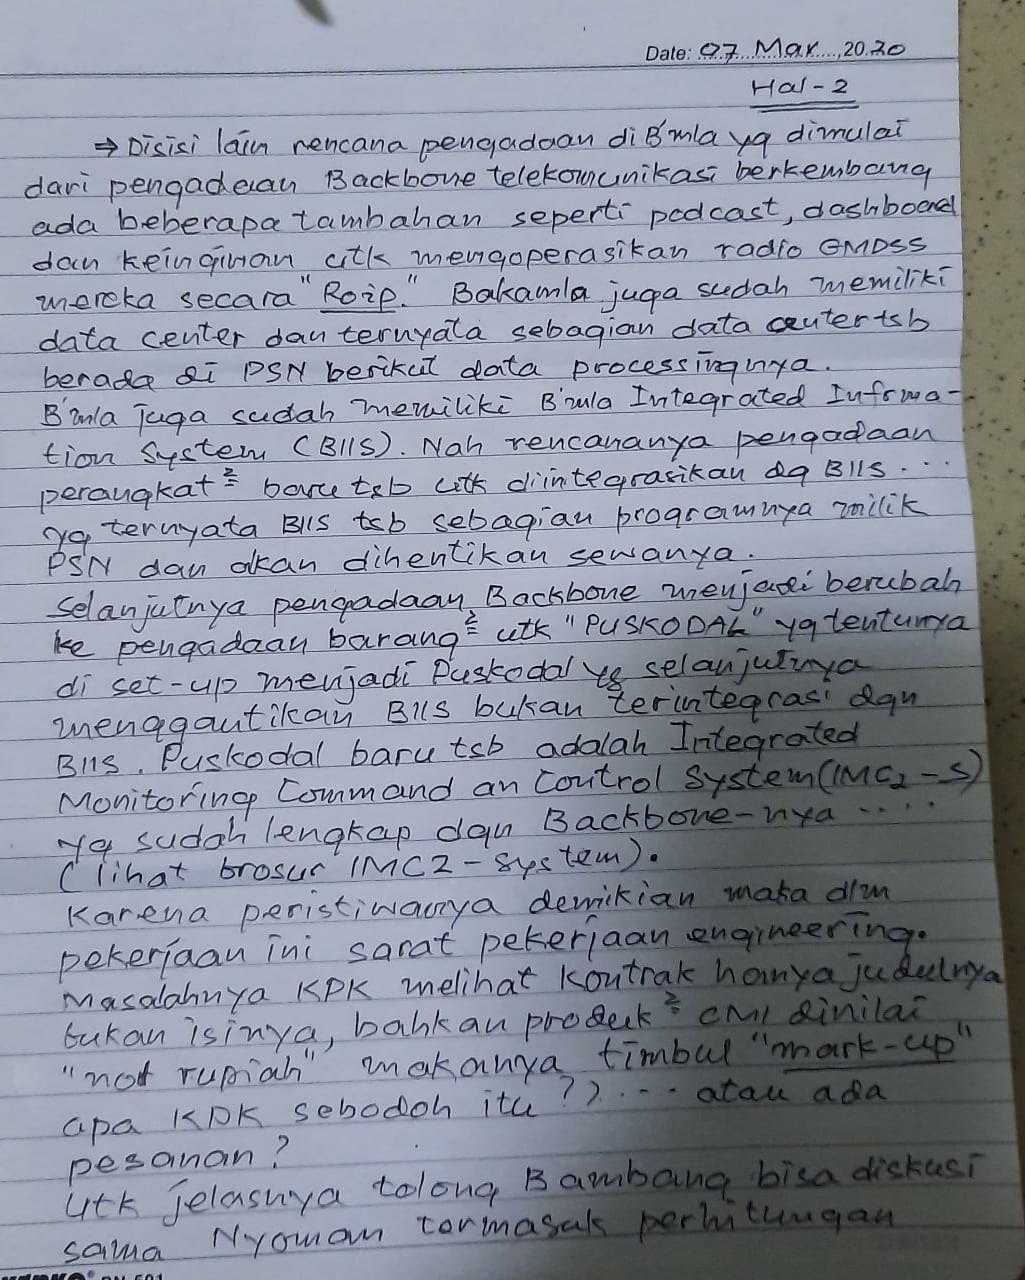 Date: 07 Mar 2020
Hal-2
→ Disisi lain rencana pengadaan di B'mla yg dimulai
dari pengadaan Backbone telekomunikasi berkembang
ada beberapa tambahan seperti podcast, dashboard
dan keinginan utk mengoperasikan radio GMDSS
mereka secara "Roip." Bakamla juga sudah memiliki
data center dan ternyata sebagian data center tsb
berada di PSN berikut data processingnya.
B'mla juga sudah memiliki B'mla Integrated Informa-
tion System (BIIS). Nah rencananya pengadaan
perangkat² baru tsb utk diintegrasikan dg BIIS ...
yg ternyata BIIS tsb sebagian programnya milik
PSN dan akan dihentikan sewanya.
Selanjutnya pengadaan Backbone menjadi berubah
ke pengadaan barang² utk "PUSKODAL" yg tentunya
di set-up menjadi Puskodal yg selanjutnya
menggantikan BIIS bukan terintegrasi dgn
BIIS. Puskodal baru tsb adalah Integrated
Monitoring Command an Control System (IMC2-S)
yg sudah lengkap dgn Backbone-nya ....
(lihat brosur IMC2-system).
Karena peristiwanya demikian maka dlm
pekerjaan ini sarat pekerjaan engineering.
Masalahnya KPK melihat kontrak hanya judulnya
bukan isinya, bahkan produk² CMI dinilai
"not rupiah" makanya timbul "mark-up"
apa KPK sebodoh itu ?? .... atau ada
pesanan?
Utk jelasnya tolong Bambang bisa diskusi
sama Nyoman termasuk perhitungan